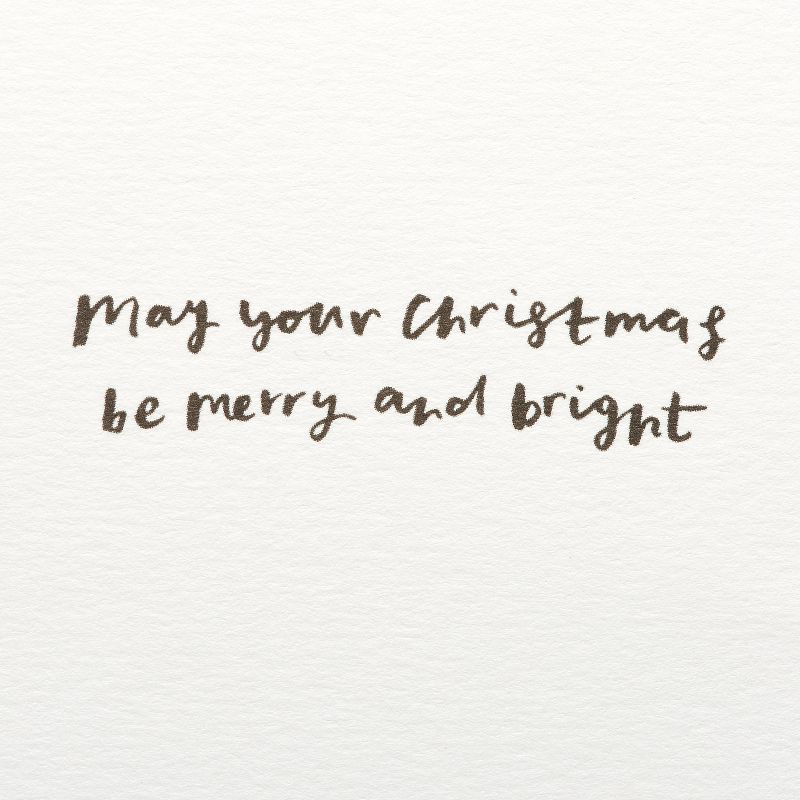 May your Christmas
be merry and bright